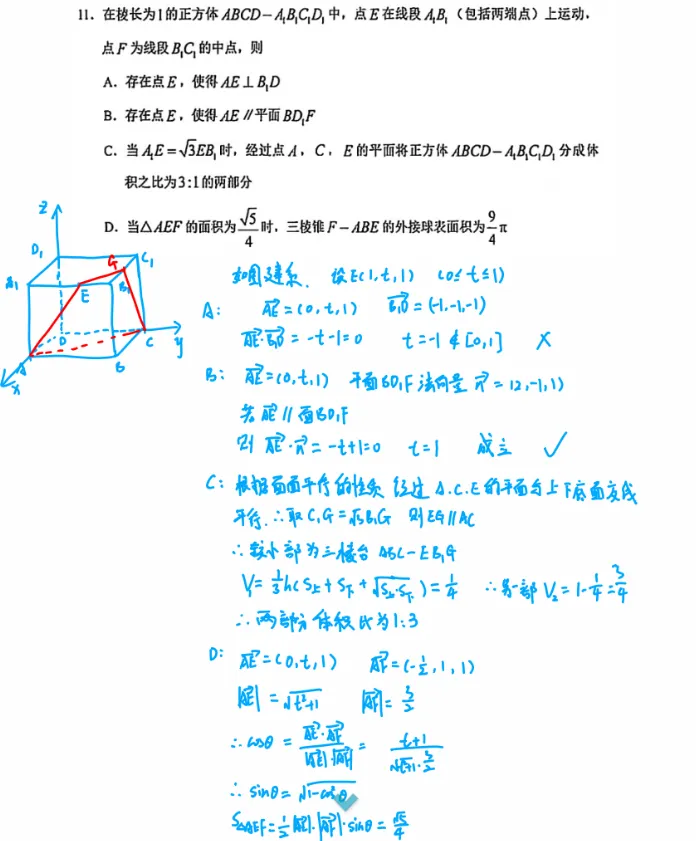 11. 在棱长为1的正方体ABCD-A₁B₁C₁D₁中，点E在线段A₁B₁（包括两端点）上运动，
点F为线段B₁C₁的中点，则
A. 存在点E，使得AE⊥B₁D
B. 存在点E，使得AE∥平面BD₁F
C. 当A₁E=√3EB₁时，经过点A，C，E的平面将正方体ABCD-A₁B₁C₁D₁分成体
积之比为3:1的两部分
D. 当△AEF的面积为√5/4时，三棱锥F-ABE的外接球表面积为9/4π
z
D₁
C₁
G
A₁
B₁
E
D
C
y
A
B
x
如图建系. 设E(1,t,1) (0≤t≤1)
A: AE=(0,t,1) B₁D=(-1,-1,-1)
AE·B₁D=-t-1=0 t=-1∉[0,1] ×
B: AE=(0,t,1) 平面BD₁F法向量 n=(2,-1,1)
若AE∥面BD₁F
则 AE·n=-t+1=0 t=1 成立 ✓
C: 根据面面平行的性质 经过A.C.E的平面与上下底面交线
平行.∴取C₁G=√3B₁G 则EG∥AC
∴较小部为三棱台ABC-EB₁G
V₁=1/3h(S上+S下+√S上·S下)=1/4 ∴另一部V₂=1-1/4=3/4
∴两部分体积比为1:3
D: AE=(0,t,1) AF=(-1/2,1,1)
|AE|=√t²+1 |AF|=3/2
∴cosθ=AE·AF/|AE|·|AF|=t+1/√t²+1·3/2
∴sinθ=√1-cos²θ
S△AEF=1/2|AE|·|AF|·sinθ=√5/4